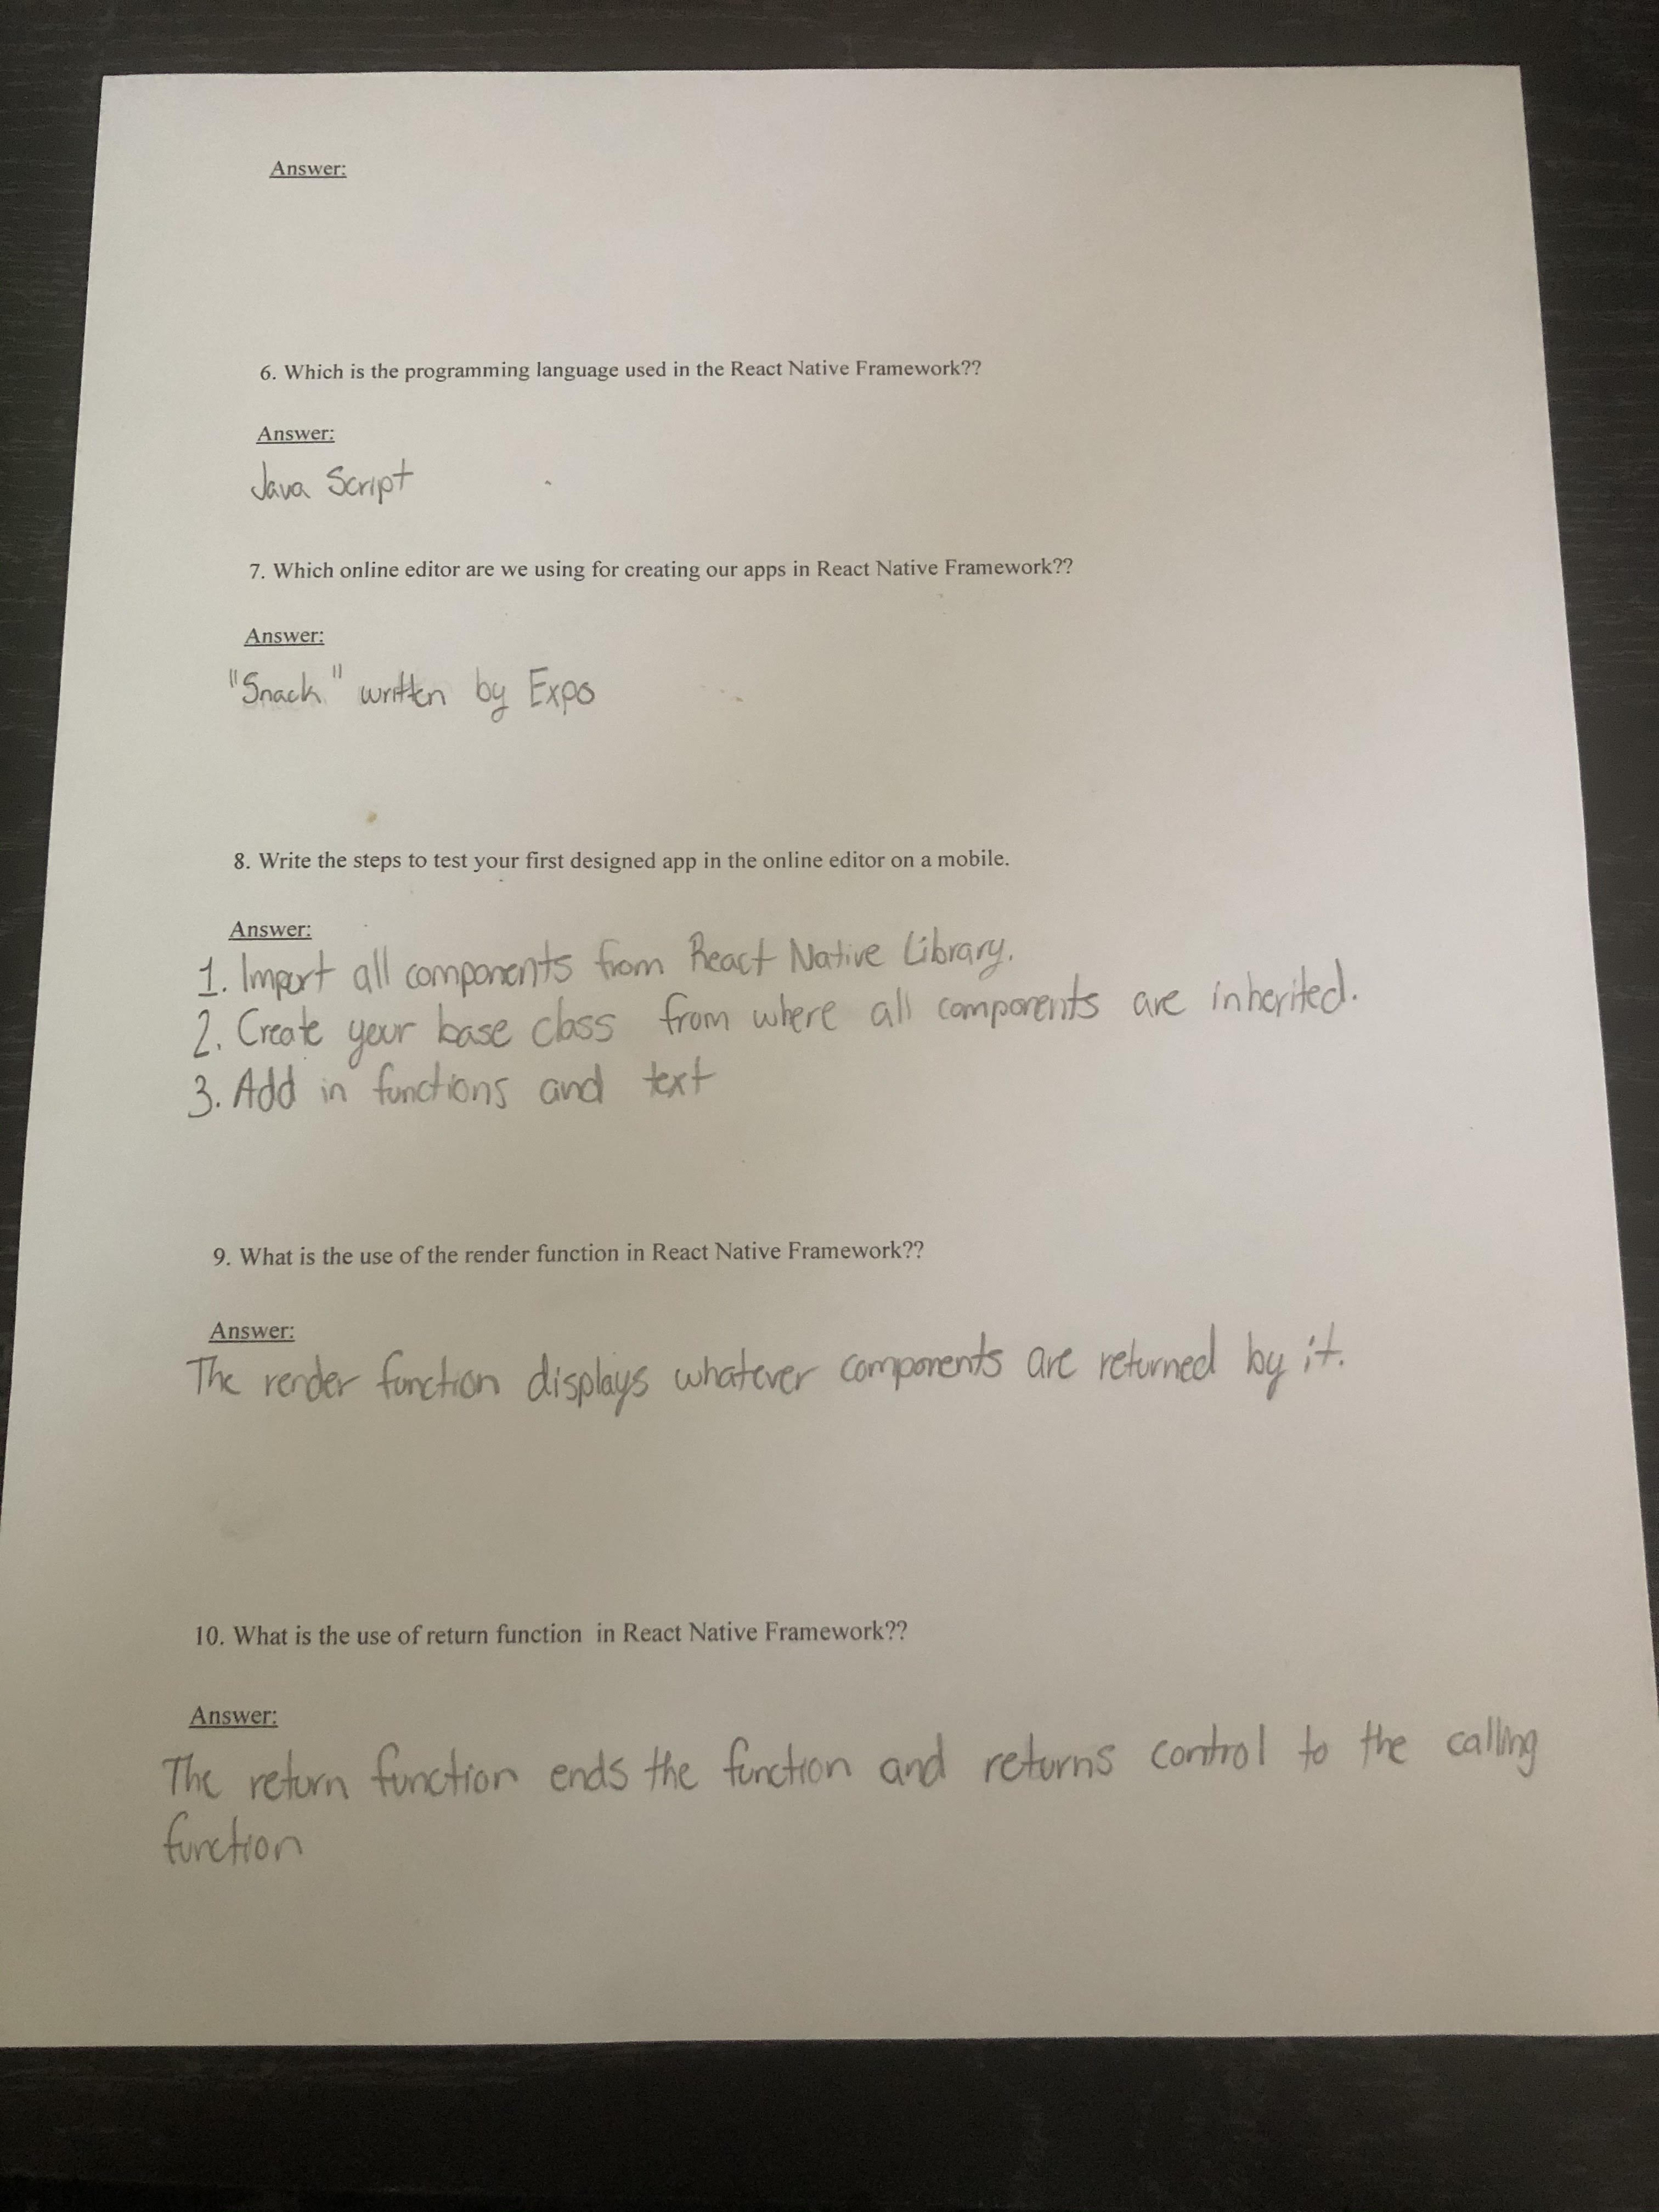 Answer:
6. Which is the programming language used in the React Native Framework??
Answer:
Java Script
7. Which online editor are we using for creating our apps in React Native Framework??
Answer:
"Snack" written by Expo
8. Write the steps to test your first designed app in the online editor on a mobile.
Answer:
1. Import all components from React Native Library.
2. Create your base class from where all components are inherited.
3. Add in functions and text
9. What is the use of the render function in React Native Framework??
Answer:
The render function displays whatever components are returned by it.
10. What is the use of return function in React Native Framework??
Answer:
The return function ends the function and returns control to the calling
function